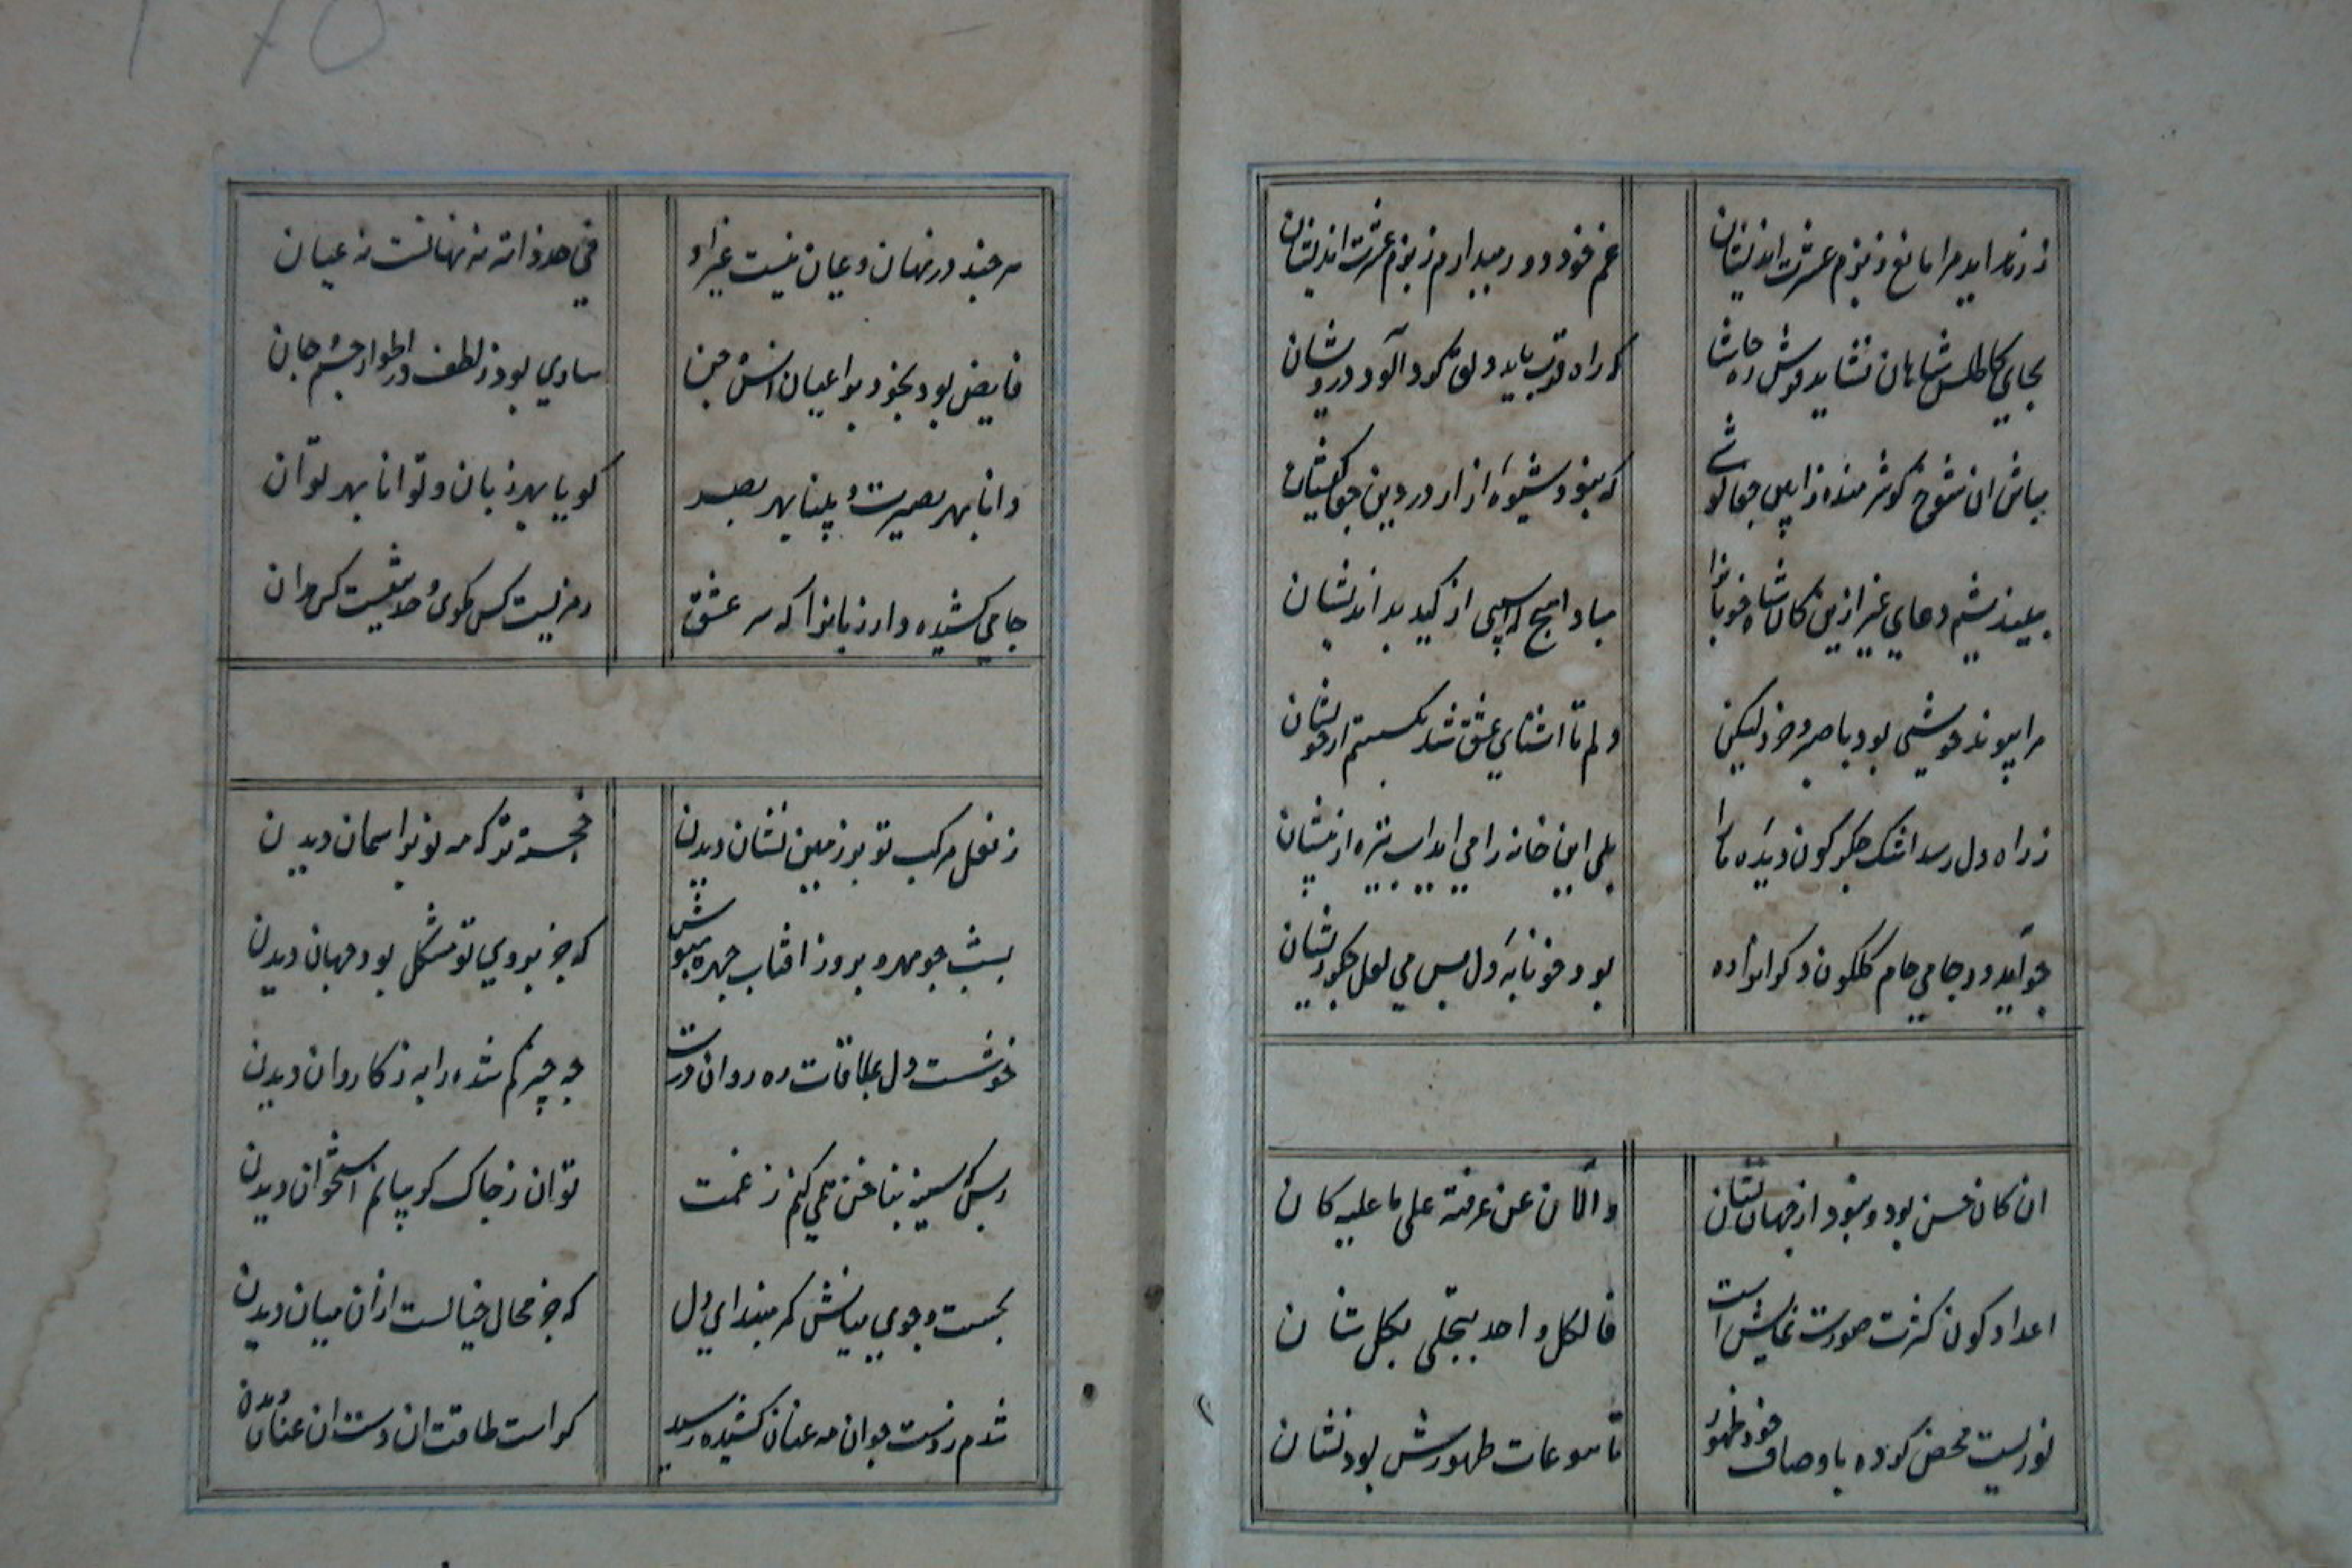 غم خود دور میدارم ز بزم عشرت اندیشان
بجای کاطلس شاهان نشاید فرش ره حاشا
که راه قرب یابد دلق گرد آلود درویشان
که بنود شیوه ازار در دین جفا کیشان
نیندیشم دعای غیر ازین کان شاه خوبانرا
مبادا هیچ اسیبی از کید بد اندیشان
مرا پیوند خویشی بود با صبر و خرد لیکن
دلم تا اشنای عشق شد بگسستم از خویشان
ز راه دل رسد اشک جگرگون دیده ما را
بلی این خانه را می اید اب تیره از پیشان
بود خونابه دل بس می لعل جگر ریشان
ان کان حسن بود و نبود از جهان نشان
والآن عن عرفته علی ما علیه کان
اعداد کون کثرت صورت نمایش است
فالکل واحد یتجلی بکل شان
نوریست محض کرده باوصاف خود ظهور
نام تنوعات ظهورش بود نشان
هر چند در نهان و عیان نیست غیر او
فی حد ذاته نه نهانست نه عیان
فایض بود بخود بر اعیان انس و جن
ساری بود ز لطف در اطوار جسم و جان
دانا بهر بصیرت و بینا بهر بصر
کویا بهر زبان و توانا بهر توان
جامی کشیده دار زبانرا که سر عشق
رمزیست کس مکوی و حدیثیست کس مدان
ز نعل مرکب تو بر زمین نشان دیدن
خجسته تر که مه نو بر اسمان دیدن
بشب چو مهر و بروز افتاب چهره مپوش
که جز بروی تو مشکل بود جهان دیدن
خوشست دل بملاقات ره روان درت
چه چیز کم شده را به ز کاروان دیدن
ز بس که سینه بناخن همی کنم ز غمت
توان ز چاک کریبانم استخوان دیدن
بجست و جوی میانش کمر مبند ای دل
که جز محال خیالست ازان میان دیدن
شدم ز دست چو ان مه عنان کشیده رسید
کراست طاقت ان دست و ان عنان دیدن